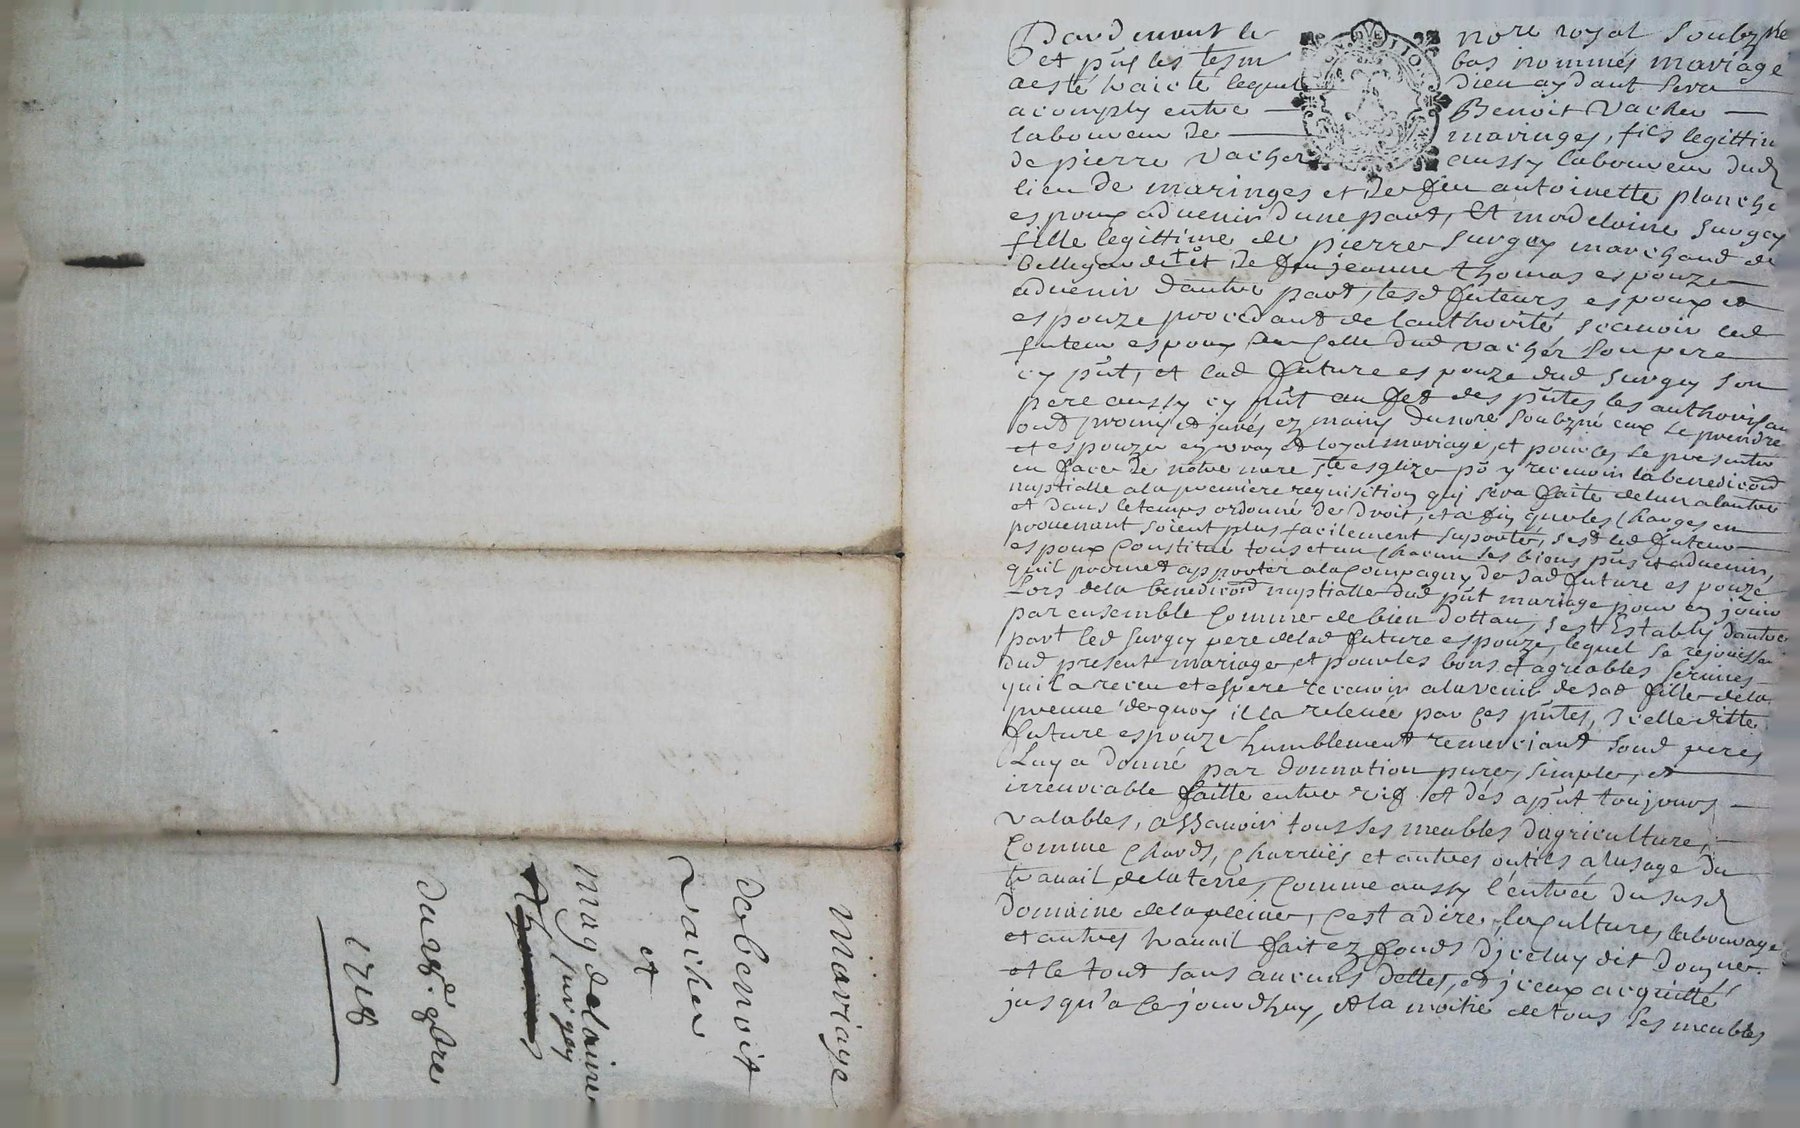 Mariage
de benoit
Vacher
et
Magdelaine
surgey
du 28e 8bre
1718
Pardevant le nore royal soubzné
et pñs les tesm bas nommés mariage
a esté traicté lequel dieu aydant sera
acomply entre Benoit Vacher
laboureur de maringes, fils legittim
de pierre Vacher aussy laboureur dud
lieu de maringes et de feu antoinette planche
espoux aduenir dune part, Et madelaine surgey
fille legittime de pierre surgey marchand de
bellegarde et de feu jeanne thomas espouze
aduenir dautre part, lesd futeurs espoux et
espouze procedant de lauthorité scauoir led
futeur espoux de celle dud vacher son pere
cy pñt, et lad future espouze dud surgey son
pere aussy cy pñt au fet des pñtes les authorisan
ont promis et jurés ez mains du nore soubzné eux se prendre
et espouzer en vray et loyal mariage, et pour ce se presenter
en face de notre mere ste esglize po y receuoir la benediction
nuptialle a la premiere requisition qui sera faite de lun a lautre
et dans le temps ordonné de droit, et a fin que les charges en
prouenant soient plus facilement suportés, sest led futeur
espoux constitué tous et un chacun ses biens pñs et aduenir,
quil promet apporter a la compagny de sad future espouze
Lors de la benediction nuptialle dud pñt mariage pour en jouir
par ensemble comme de bien dottau, sest Estably dautre
part led surgey pere de lad future espouze, lequel se rejouissan
dud present mariage, et pour les bons et agreables seruices
quil a receu et espere receuoir a lavenir de sad fille de la
preuue de quoy il la releuée par ces pñtes, Icelle ditte
future espouze humblement remerciant sond pere
Luy a donné par donnation pure, simple, et
irreuocable faitte entre vifs et dés apñt toujours
valables, assauoir tous ses meubles dagriculture,
comme chards, charruës et autres outils a lusage du
trauail de la terre, comme aussy l'entrée du susd
domaine de la pleine, cest a dire, la culture, labourage
et autres trauail fait ez fonds djceluy dit domne
et le tout sans aucuns dettes, et jceux acquitté
jusqu'a ce jourdhuy, et la moitié de tous ses meubles